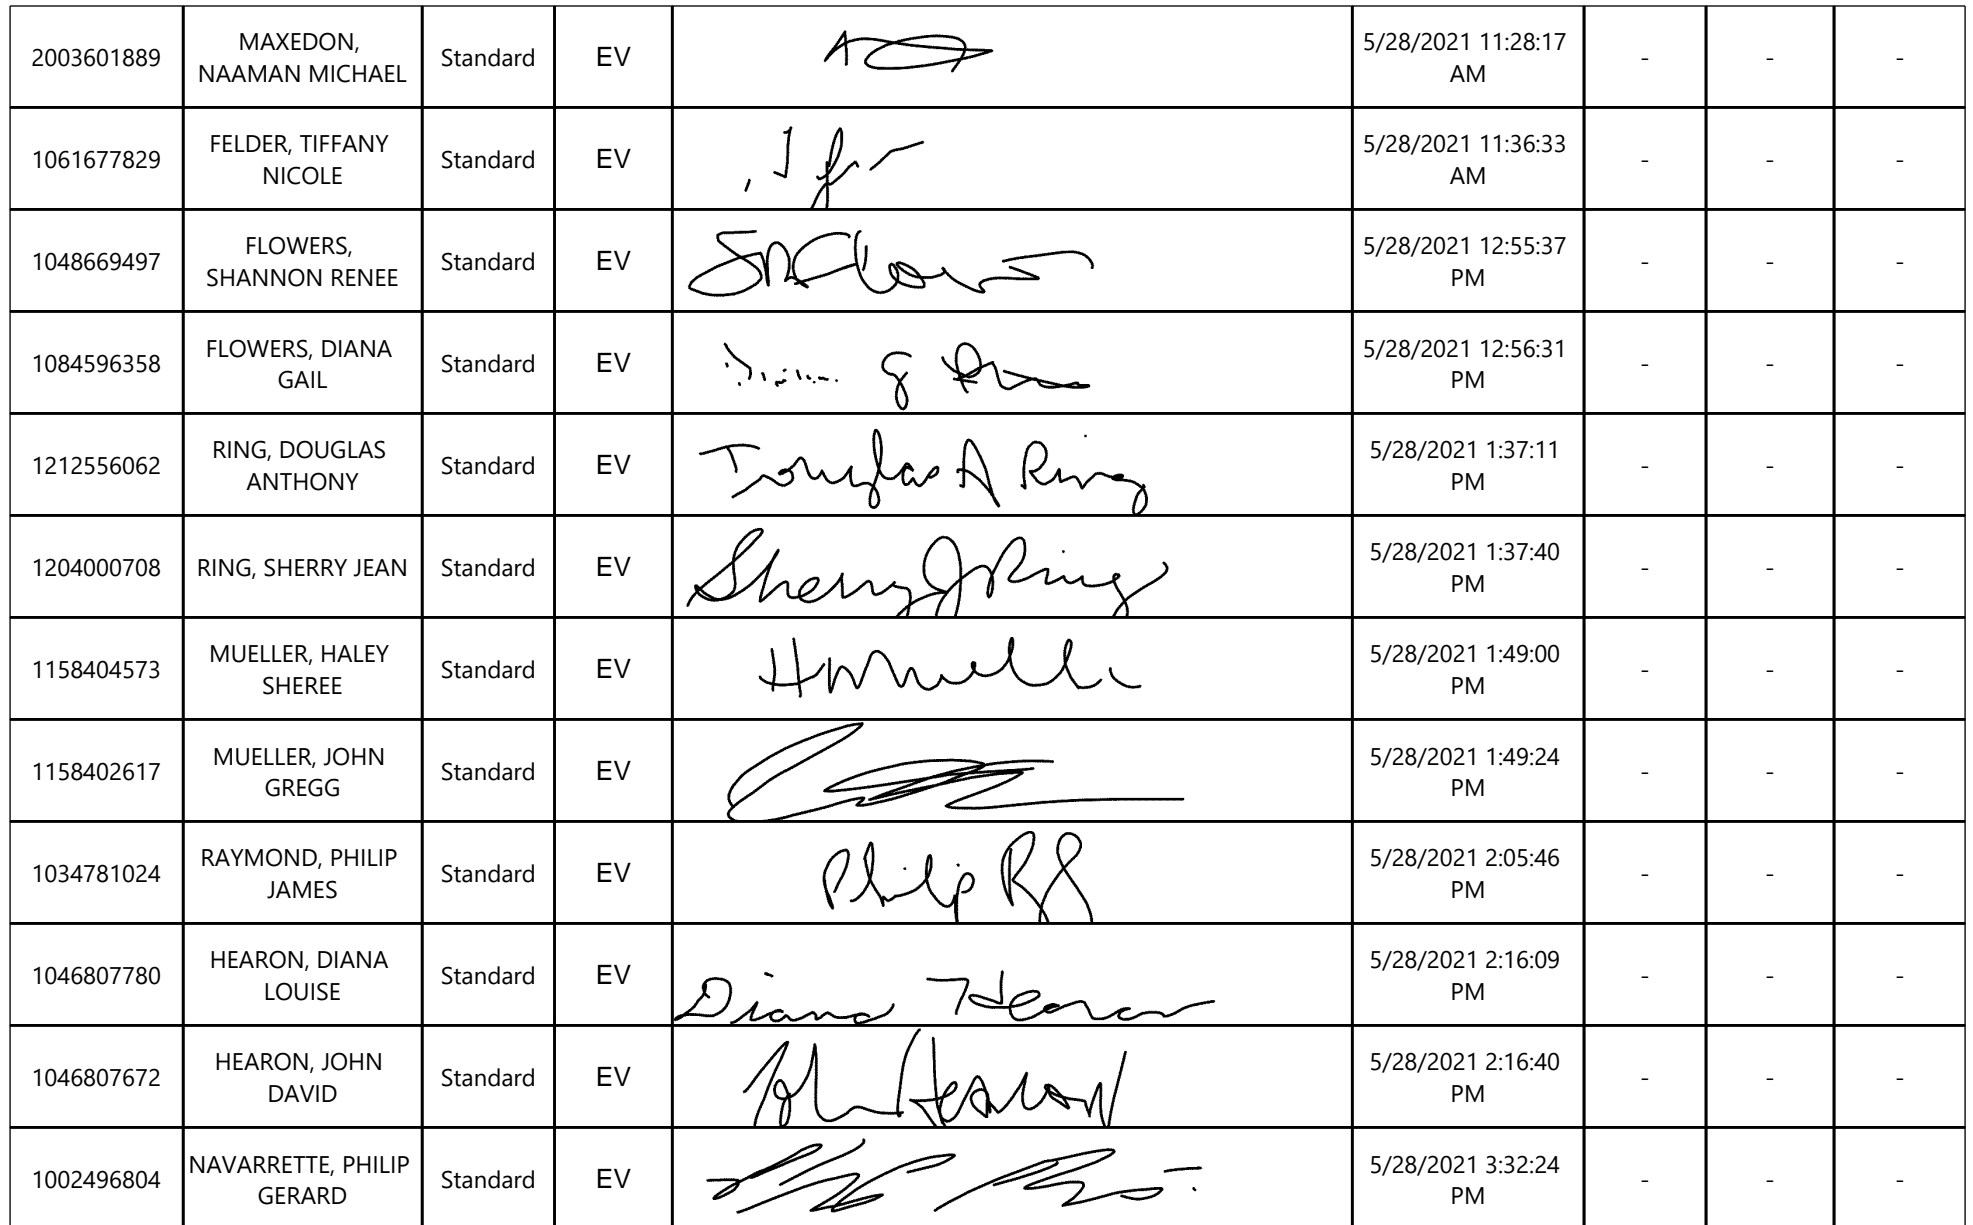 2003601889 MAXEDON, NAAMAN MICHAEL Standard EV 5/28/2021 11:28:17 AM - - -
1061677829 FELDER, TIFFANY NICOLE Standard EV 5/28/2021 11:36:33 AM - - -
1048669497 FLOWERS, SHANNON RENEE Standard EV 5/28/2021 12:55:37 PM - - -
1084596358 FLOWERS, DIANA GAIL Standard EV 5/28/2021 12:56:31 PM - - -
1212556062 RING, DOUGLAS ANTHONY Standard EV Douglas A Ring 5/28/2021 1:37:11 PM - - -
1204000708 RING, SHERRY JEAN Standard EV Sherry J Ring 5/28/2021 1:37:40 PM - - -
1158404573 MUELLER, HALEY SHEREE Standard EV 5/28/2021 1:49:00 PM - - -
1158402617 MUELLER, JOHN GREGG Standard EV 5/28/2021 1:49:24 PM - - -
1034781024 RAYMOND, PHILIP JAMES Standard EV Philip R 5/28/2021 2:05:46 PM - - -
1046807780 HEARON, DIANA LOUISE Standard EV Diana Hearon 5/28/2021 2:16:09 PM - - -
1046807672 HEARON, JOHN DAVID Standard EV John Hearon 5/28/2021 2:16:40 PM - - -
1002496804 NAVARRETTE, PHILIP GERARD Standard EV 5/28/2021 3:32:24 PM - - -